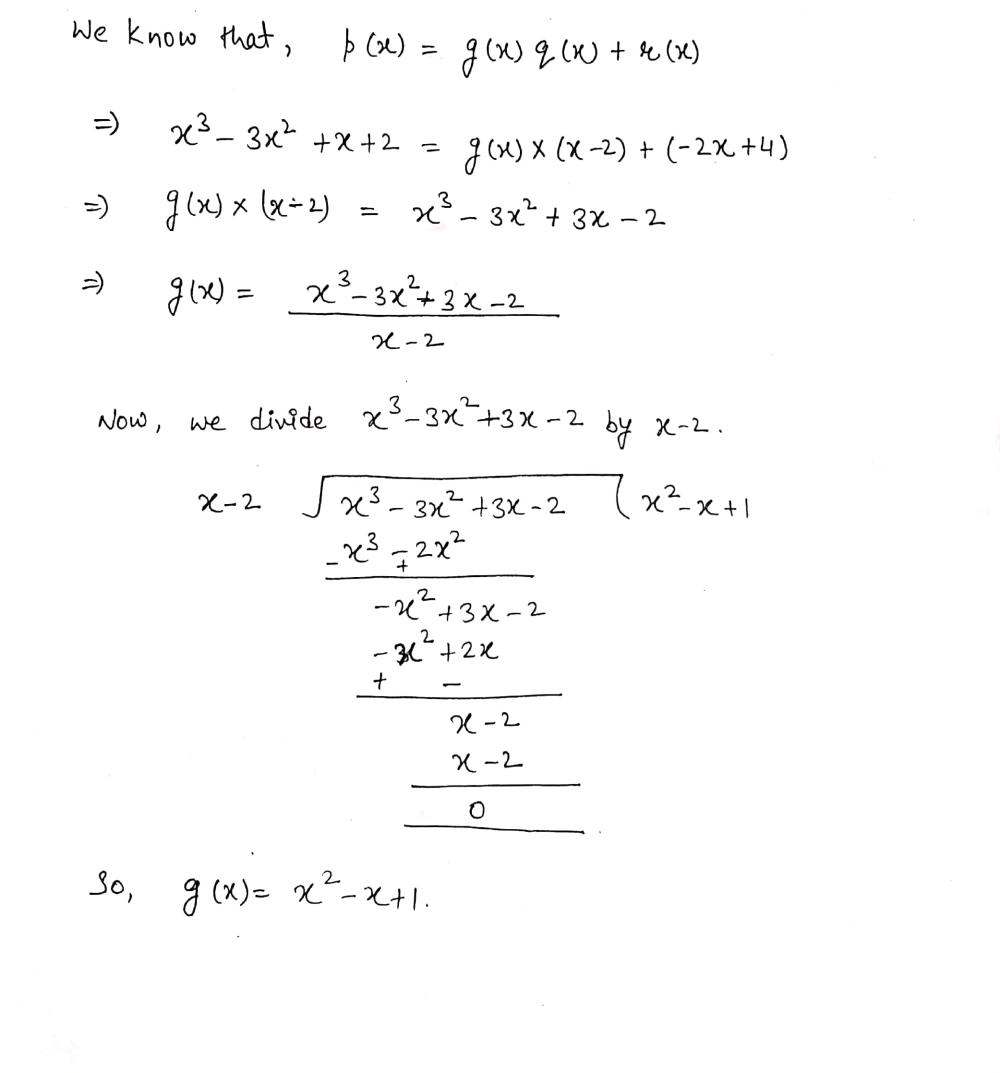 We know that, p(x) = g(x) q(x) + r(x)
⇒ x³ - 3x² + x + 2 = g(x) × (x-2) + (-2x+4)
⇒ g(x) × (x-2) = x³ - 3x² + 3x - 2
⇒ g(x) = x³ - 3x² + 3x - 2
x-2
Now, we divide x³-3x²+3x-2 by x-2.
x-2 √ x³ - 3x² + 3x - 2 ( x² - x + 1
- x³ - 2x²
+
-x² + 3x - 2
-x² + 2x
+ -
x - 2
x - 2
0
So, g(x) = x² - x + 1.